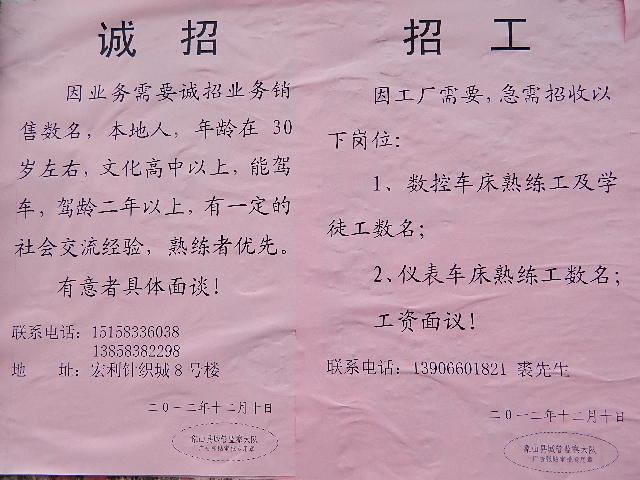 诚招
因业务需要诚招业务销
售数名，本地人，年龄在 30
岁左右，文化高中以上，能驾
车，驾龄二年以上，有一定的
社会交流经验，熟练者优先。
有意者具体面谈！
联系电话：15158336038
13858382298
地 址：宏利针织城8号楼
二〇一二年十二月十日
象山县城管监察大队
广告张贴审批专用章
招 工
因工厂需要，急需招收以
下岗位：
1、数控车床熟练工及学
徒工数名；
2、仪表车床熟练工数名；
工资面议！
联系电话：13906601821 裘先生
二〇一二年十二月十日
象山县城管监察大队
广告张贴审批专用章